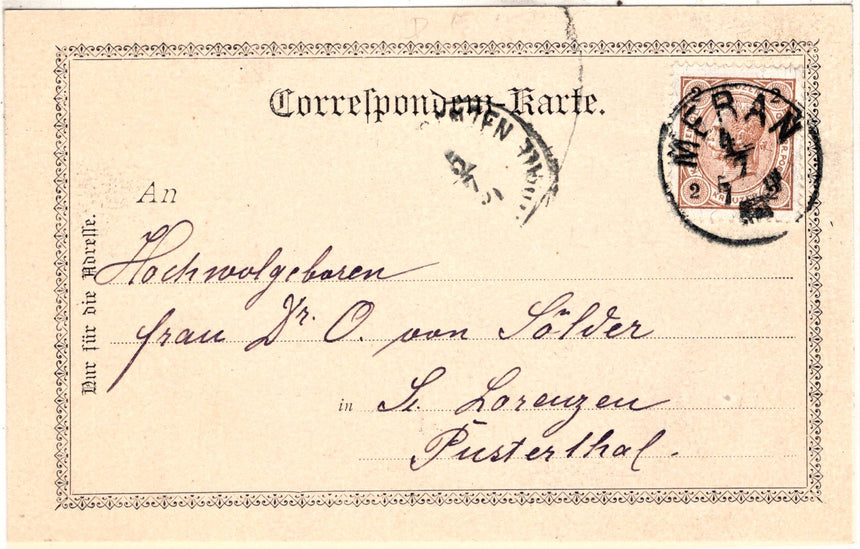 Correspondenz-Karte.
MERAN
2 2
2 2
An
Nur für die Adresse.
Hochwolgeboren
frau Dr. O. von Sölder
in St. Lorenzen
Pusterthal.